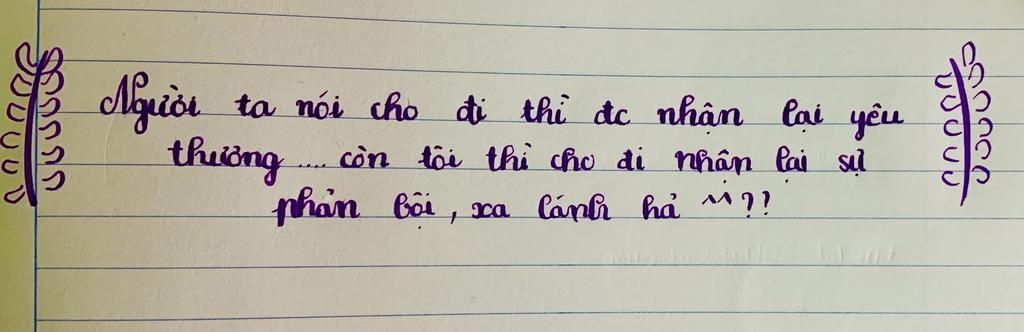 Người ta nói cho đi thì đc nhận lại yêu
thương.... còn tôi thì cho đi nhận lại sự
phản bội, xa lánh hả ^^??